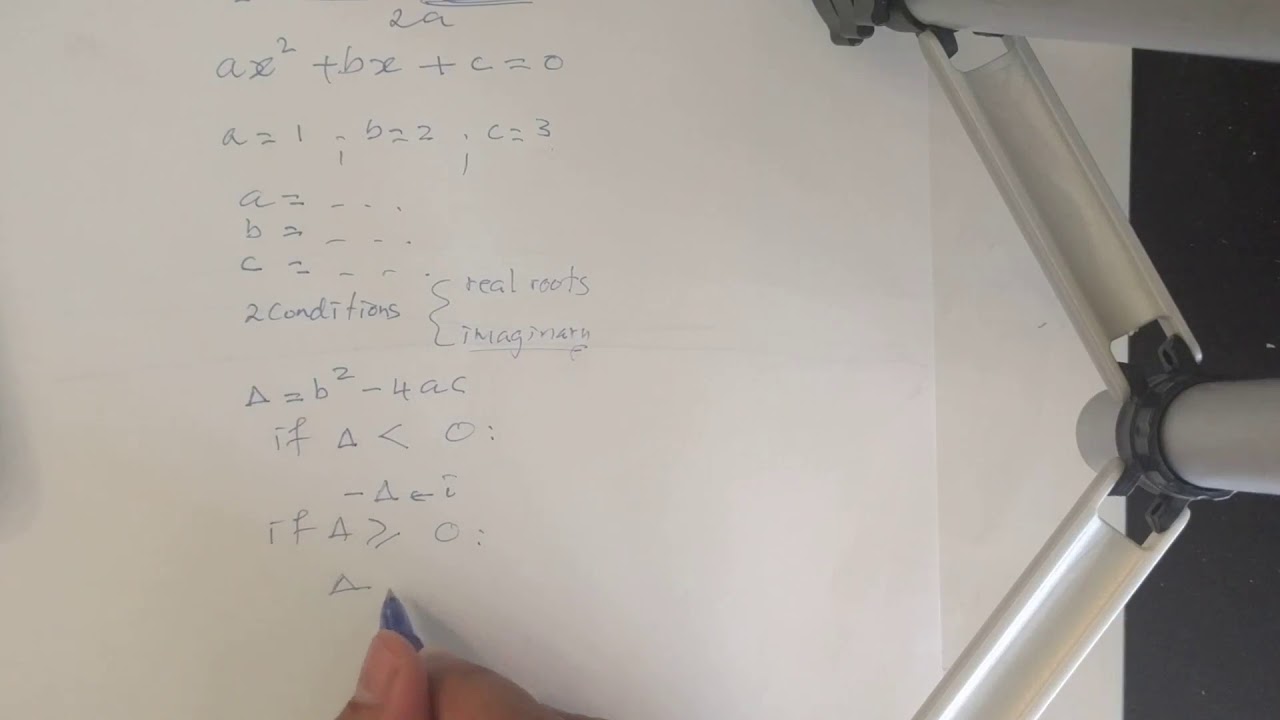 2a
ax² + bx + c = 0
a = 1 ; b = 2 ; c = 3
a = - - .
b = - - .
c = - - .
2 conditions { real roots
imaginary
Δ = b² - 4ac
if Δ < 0 :
- Δ ← i
if Δ ≥ 0 :
Δ